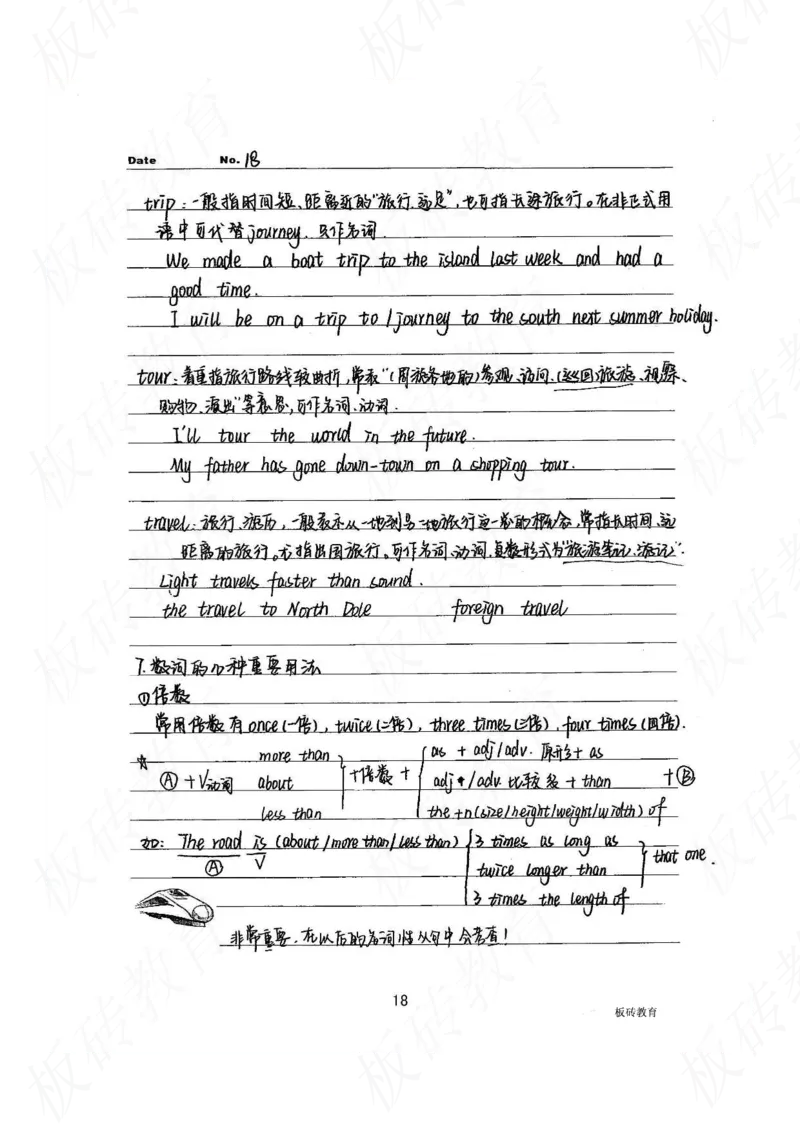 Date No. 18
trip：一般指时间短、距离近的“旅行、远足”，也可指长途旅行。在非正式用
语中可代替journey. 只作名词.
We made a boat trip to the island last week and had a
good time.
I will be on a trip to / journey to the south next summer holiday.
tour：着重指旅行路线较曲折，常表“(周游各地的)参观、访问、(巡回)旅游、视察、
购物、演出”等意思，可作名词、动词.
I'll tour the world in the future.
My father has gone down-town on a shopping tour.
travel：旅行、游历，一般表示从一地到另一地旅行这一总的概念，常指长时间、远
距离的旅行。尤指出国旅行。可作名词、动词，复数形式为“旅游笔记、游记”.
Light travels faster than sound.
the travel to North Pole foreign travel
7. 数词的几种重要用法
①倍数
常用倍数有once(一倍), twice(二倍), three times(三倍), four times(四倍).
☆ more than as + adj/adv. 原形 + as
Ⓐ + V动词 about +倍数 + adj./adv. 比较级 + than + Ⓑ
less than the +n(size/height/weight/width) of
如: The road is (about / more than / less than) 3 times as long as
Ⓐ V twice longer than that one.
3 times the length of
非常重要，在以后的名词性从句中会考查！
18
板砖教育